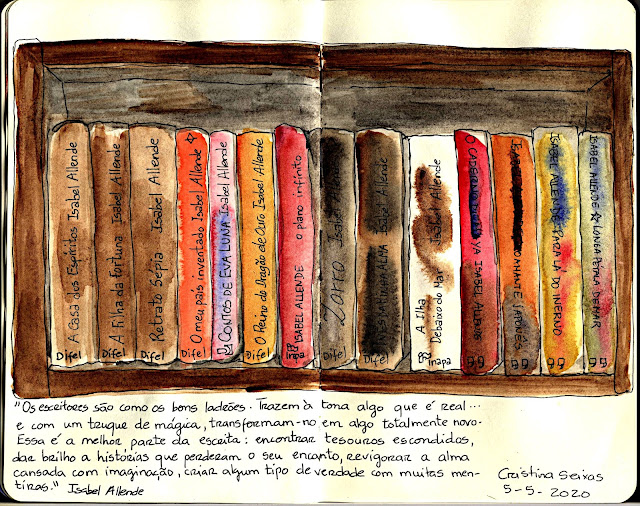 A Casa dos Espíritos Isabel Allende
Difel
A Filha da Fortuna Isabel Allende
Difel
Retrato Sépia Isabel Allende
Difel
O meu país inventado Isabel Allende
Difel
CONTOS DE EVA LUNA Isabel Allende
O Reino do Dragão de Ouro Isabel Allende
Difel
ISABEL ALLENDE o plano infinito
inapa
Zorro Isabel
Difel
ALMA Isabel Allende
Difel
A Ilha
Debaixo do Mar Isabel Allende
inapa
O CADERNO DE MAYA ISABEL ALLENDE
AMANTE JAPONÊS
ISABEL ALLENDE PARA LÁ DO INVERNO
ISABEL ALLENDE LONGA PÉTALA DE MAR
"Os escritores são como os bons ladrões. Trazem à tona algo que é real...
e com um truque de mágica, transformam-no em algo totalmente novo.
Essa é a melhor parte da escrita: encontrar tesouros escondidos,
dar brilho a histórias que perderam o seu encanto, revigorar a alma
cansada com imaginação, criar algum tipo de verdade com muitas men-
tiras." Isabel Allende
Cristina Seixas
5-5-2020